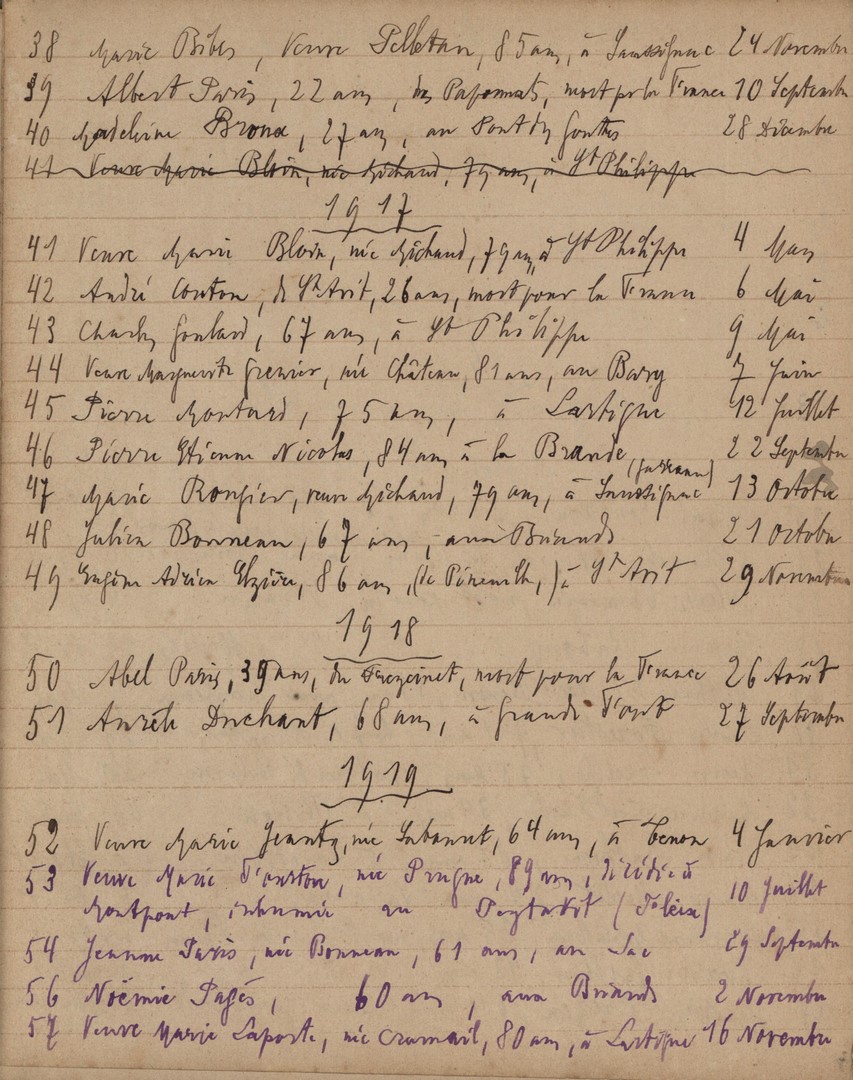 38 Marie Bibes, Veuve Pelletan, 85 ans, à Saussignac 24 Novembre
39 Albert Paris, 22 ans, des Paponnats, mort pr la France 10 Septembre
40 Madeleine Broux, 27 ans, au Pont du 28 Décembre
41 Veuve Marie Bloin, née Michaud, 79 ans, à St Philippe
1917
41 Veuve Marie Bloin, née Michaud, 79 ans, à St Philippe 4 Mars
42 André Couton, de St Avit, 26 ans, mort pour la France 6 Mai
43 Charles Goulard, 67 ans, à St Philippe 9 Mai
44 Veuve Marguerite Grenier, née Château, 81 ans, au Barry 7 Juin
45 Pierre Montard, 75 ans, à Lartigue 12 Juillet
46 Pierre Etienne Nicolas, 84 ans à la Brande 22 Septembre
47 Marie Rougier, veuve Michaud, 79 ans, à Saussignac 13 Octobre
48 Julien Bonneau, 67 ans, aux Briands 21 Octobre
49 Eugène Adrien 86 ans, (de Pineuilh,) à St Avit 29 Novembre
1918
50 Abel Paris, 39 ans, du mort pour la France 26 Août
51 Aurèle Duchant, 68 ans, à Grande Font 27 Septembre
1919
52 Veuve Marie Jeanty, née Labonnet, 64 ans, à Tenon 4 Janvier
53 Veuve Marie Fourton, née Prugne, 89 ans, décédée à
Montpont, inhumée au 10 Juillet
54 Jeanne Paris, née Bonneau, 61 ans, au Lac 29 Septembre
56 Noémie Pagès, 60 ans, aux Briands 2 Novembre
57 Veuve Marie Laporte, née Crumail, 80 ans, à Lartigue 16 Novembre